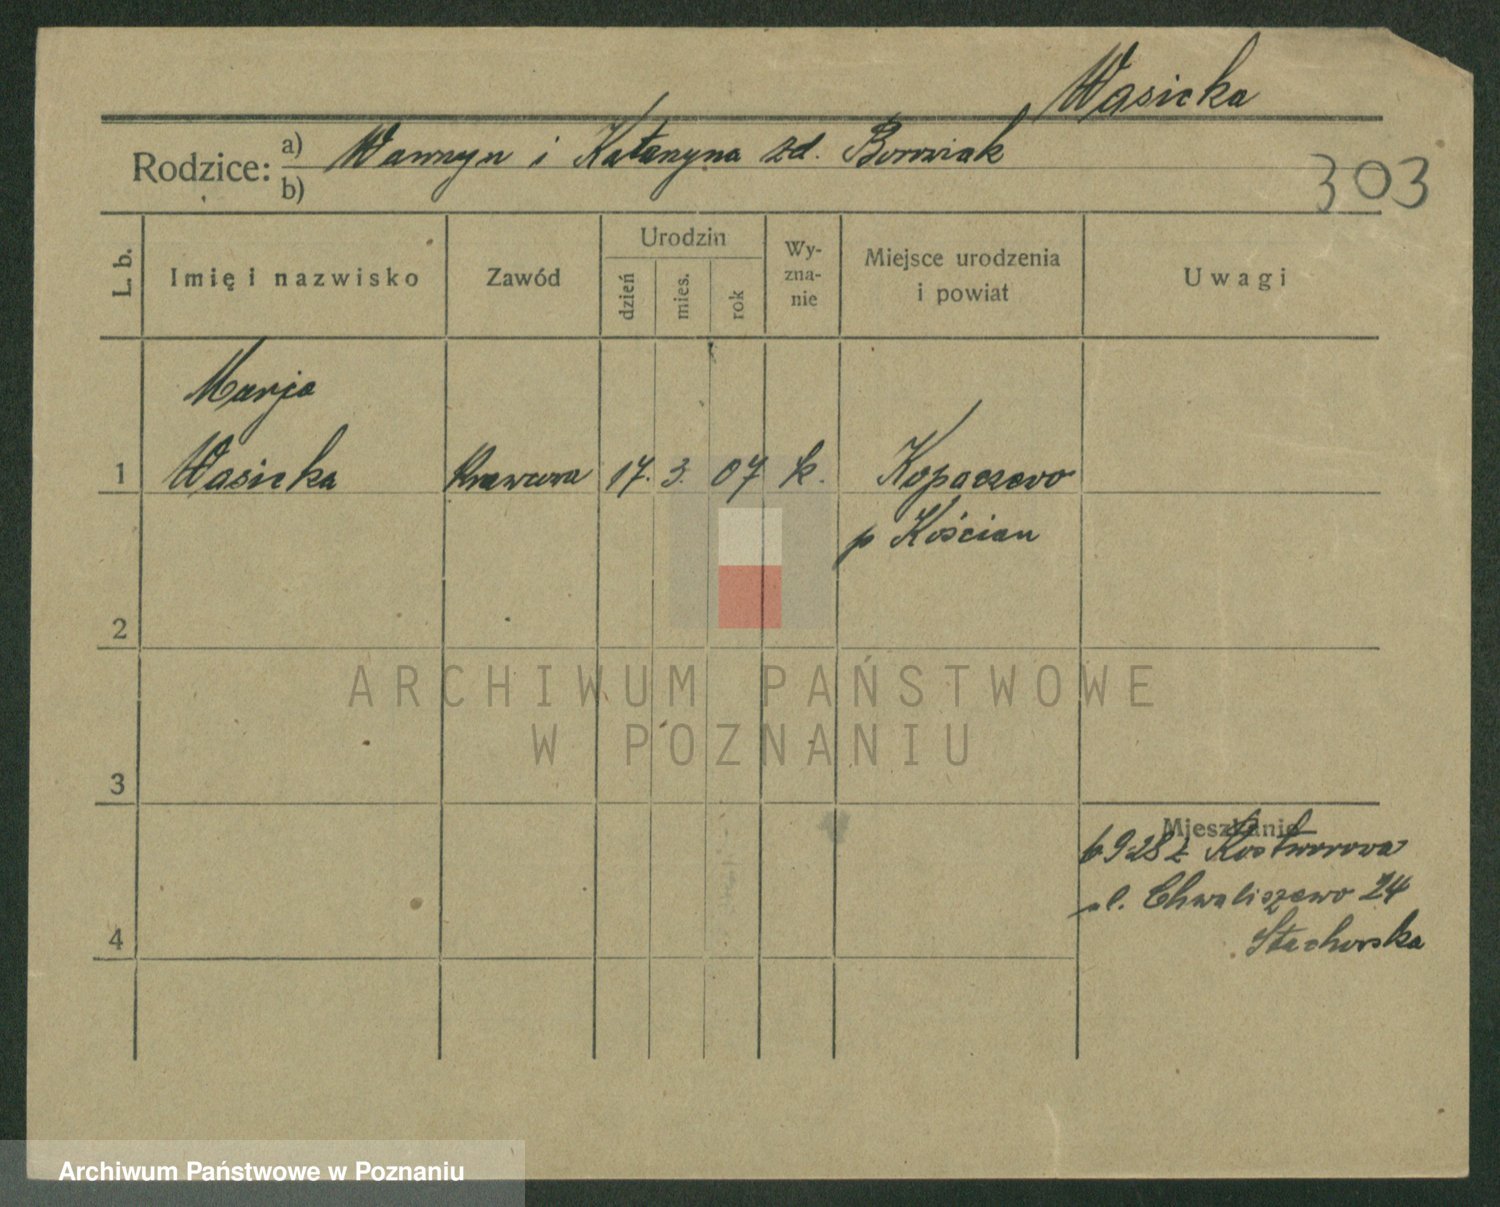 Wasicka
Rodzice: a) Wawrzyn i Katarzyna zd. Borowiak
b)
303
L. b.
Imię i nazwisko
Zawód
Urodzin
dzień
mies.
rok
Wy-
zna-
nie
Miejsce urodzenia
i powiat
Uwagi
Marja
1 Wasicka Krawcowa 17. 3. 07 k. Kopaczewo
p Kościan
2
3
4
Mieszkanie
6928 z Kostworowa
ul. Chwaliszewo 24
Stachorska
ARCHIWUM PAŃSTWOWE
W POZNANIU
Archiwum Państwowe w Poznaniu